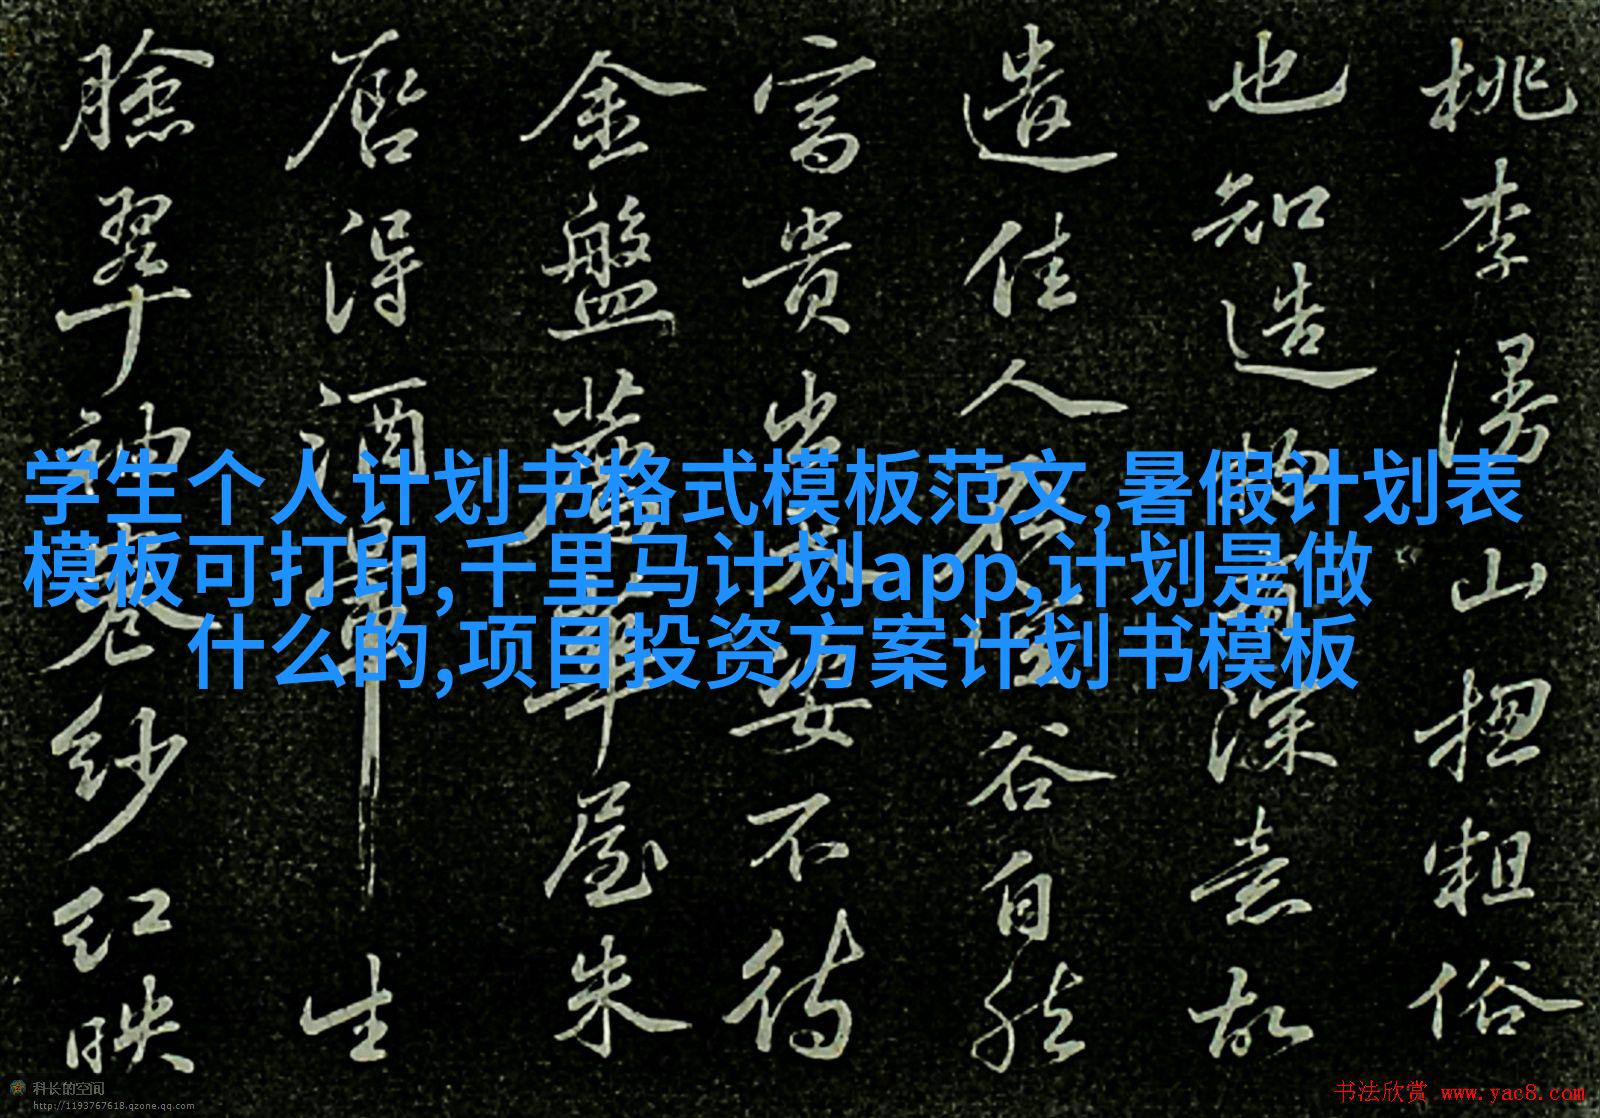 桃李漫山揔粗俗
也知造物有深意故
遣佳人在空谷自然
富貴出天姿不待
金盤薦華屋朱
唇得酒暈生
臉翠袖卷紗紅映
学生个人计划书格式模板范文,暑假计划表
模板可打印,千里马计划app,计划是做
什么的,项目投资方案计划书模板
科长的空间
http://1193767618.qzone.qq.com
书法欣赏 www.yac8.com